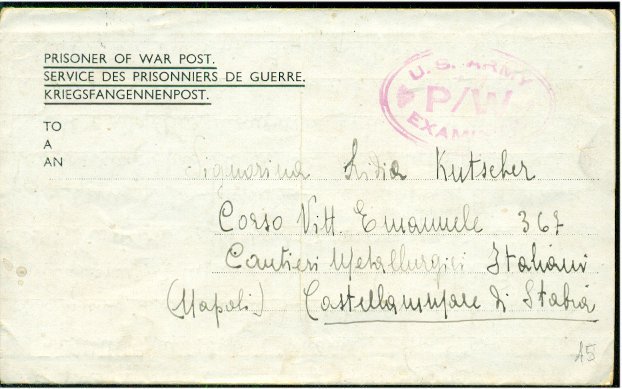 PRISONER OF WAR POST.
SERVICE DES PRISONNIERS DE GUERRE.
KRIEGSFANGENNENPOST.
U.S. ARMY
P/W
TO
A
AN
Signorina Lidia Kutscher
Corso Vitt. Emanuele 367
Cantieri Metallurgici Italiani
(Napoli) Castellammare di Stabia
45